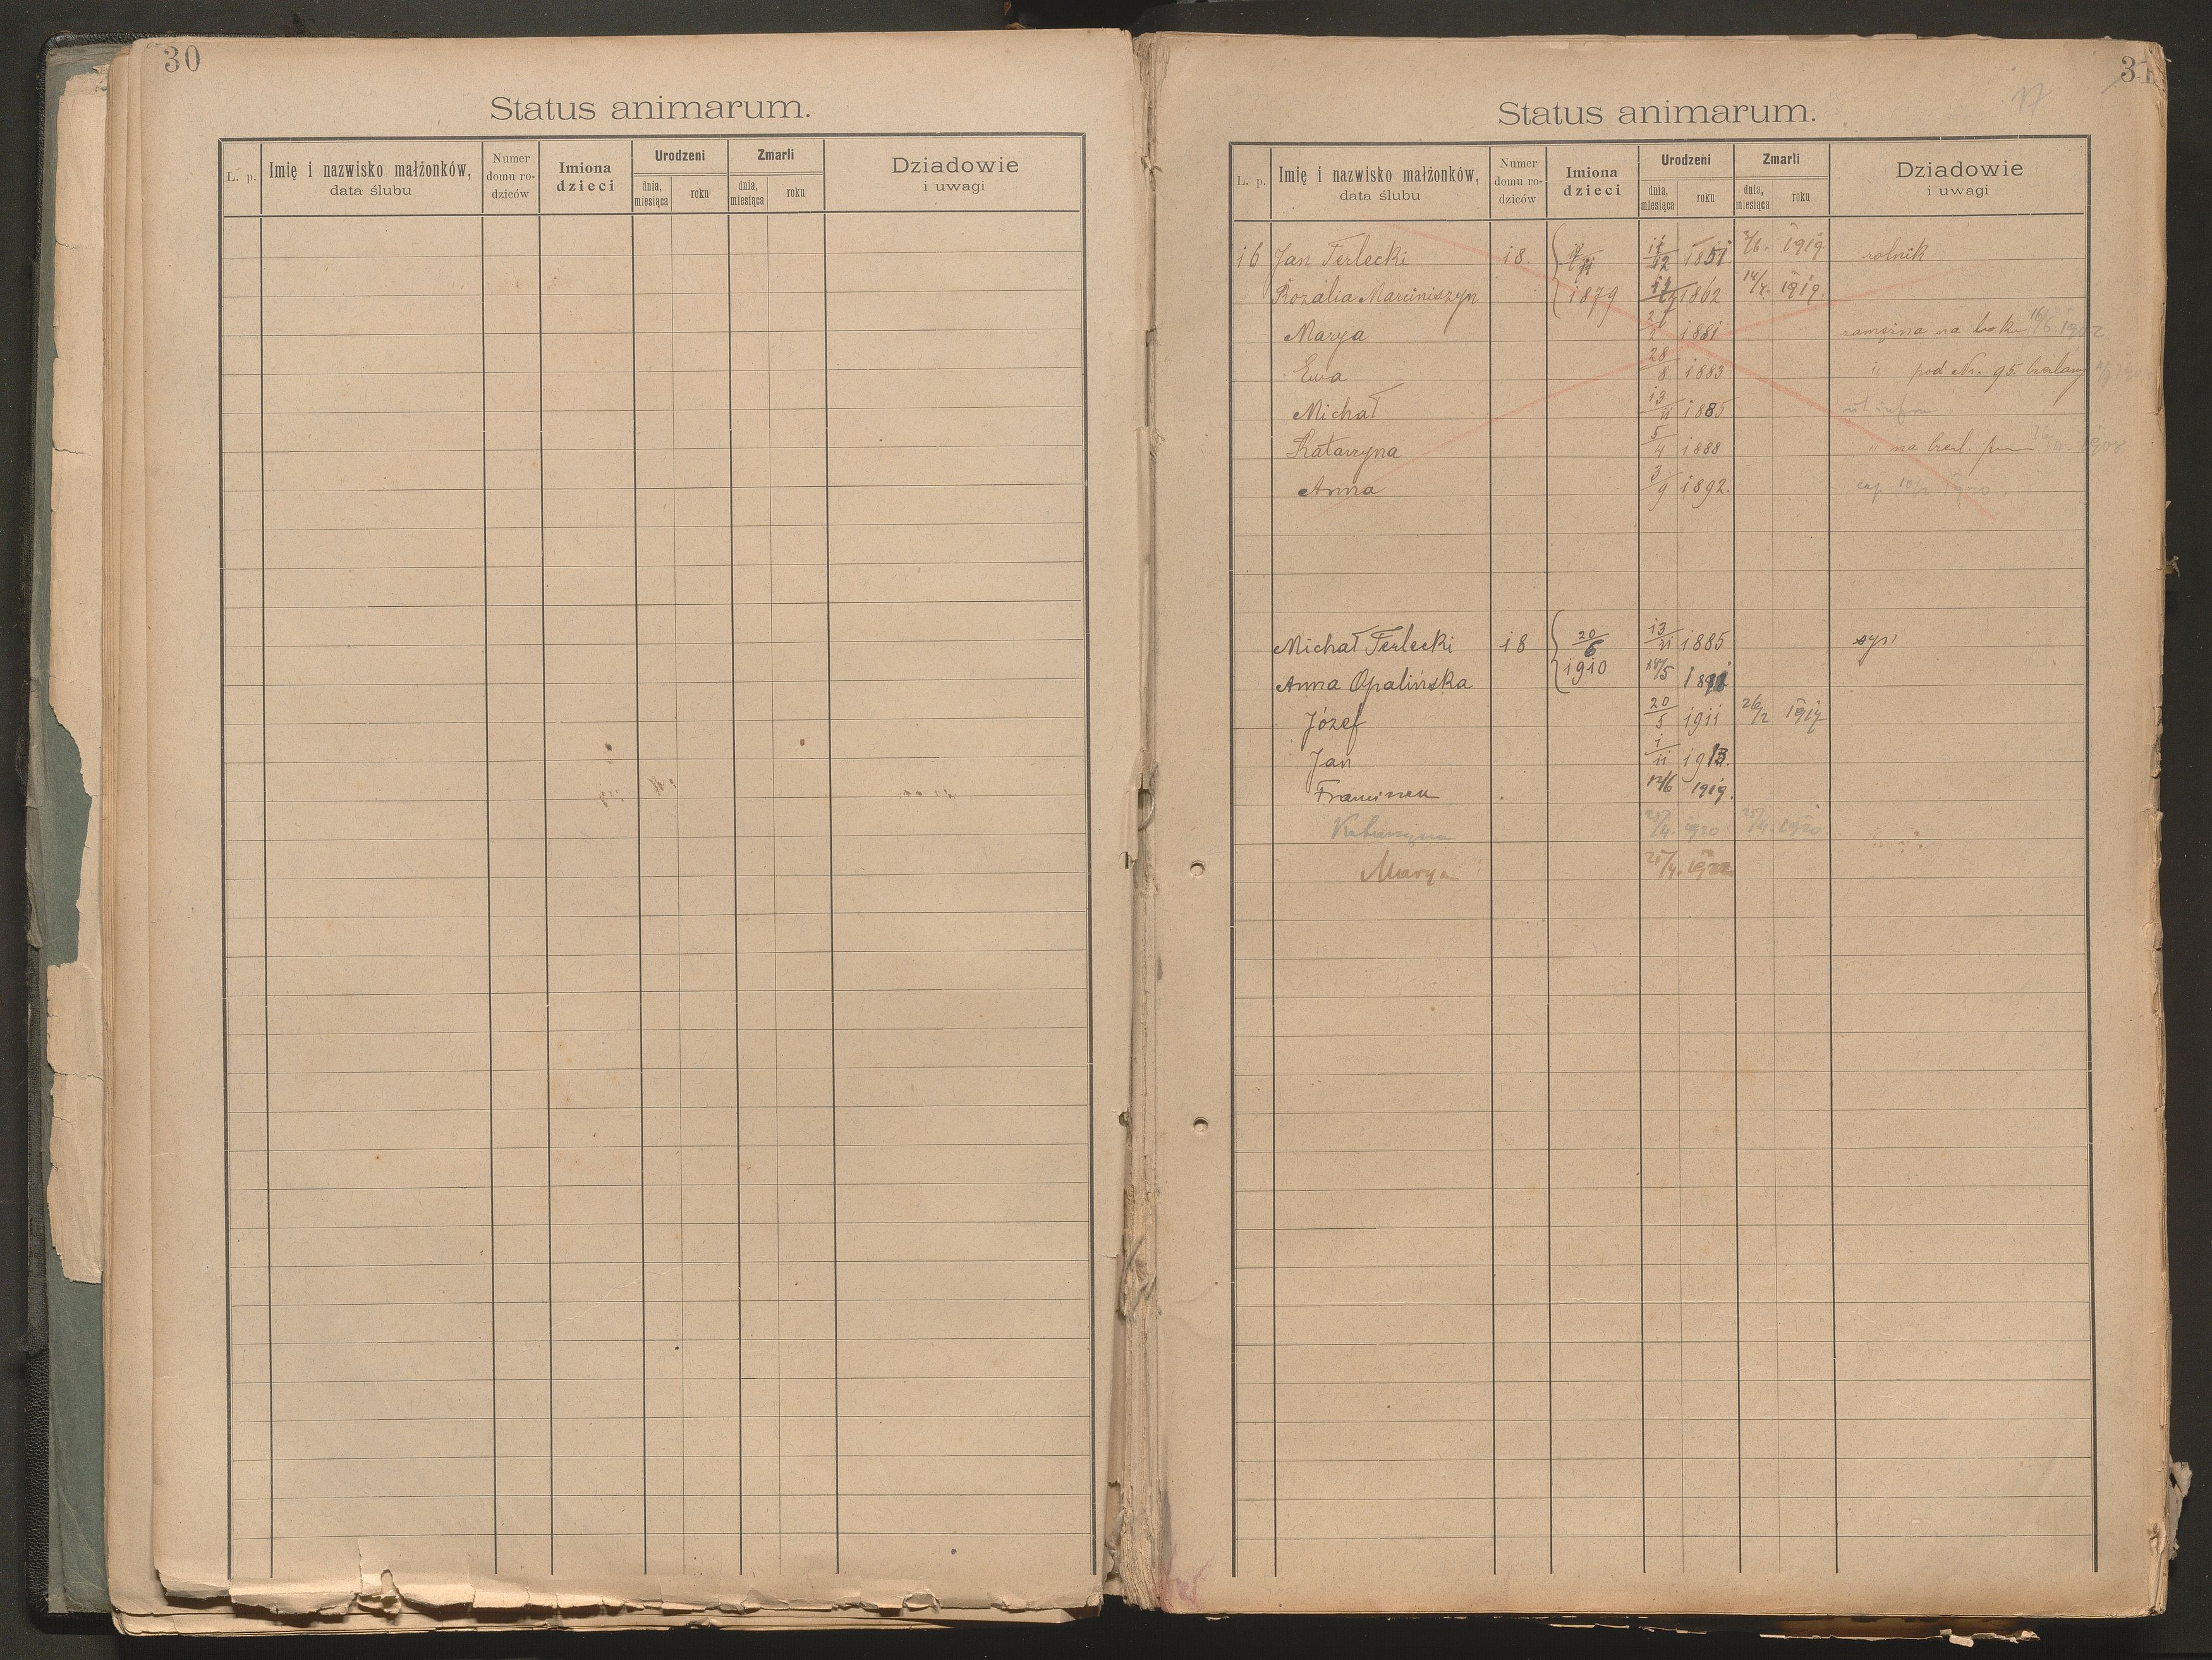 30
Status animarum.
L. p. Imię i nazwisko małżonków, data ślubu Numer domu ro- dziców Imiona dzieci Urodzeni dnia, miesiąca roku Zmarli dnia, miesiąca roku Dziadowie i uwagi
31
17
Status animarum.
L. p. Imię i nazwisko małżonków, data ślubu Numer domu ro- dziców Imiona dzieci Urodzeni dnia, miesiąca roku Zmarli dnia, miesiąca roku Dziadowie i uwagi
16 Jan Terlecki 18. 12 1851 3/6. 1919. rolnik
Rozalia Marciniszyn 1879 1862 14/7. 1919.
Marya 2 1881 zamężna na boku 16/6. 1902
Ewa 28/8 1883 " pod Nr. 95.
Michał 13/11 1885 ut infra
Katarzyna 5/4 1888 " na 1908
Anna 3/9 1892. cop 10/2 1920
Michał Terlecki 18 20/6 13/11 1885 syn
Anna Opalińska 1910 14/5
Józef 20/5 1911 26/2 1917
Jan 1/11 1913.
Franciszek 12/6 1919.
Katarzyna 25/4. 1920 25/4. 1920
Marya 25/4. 1922